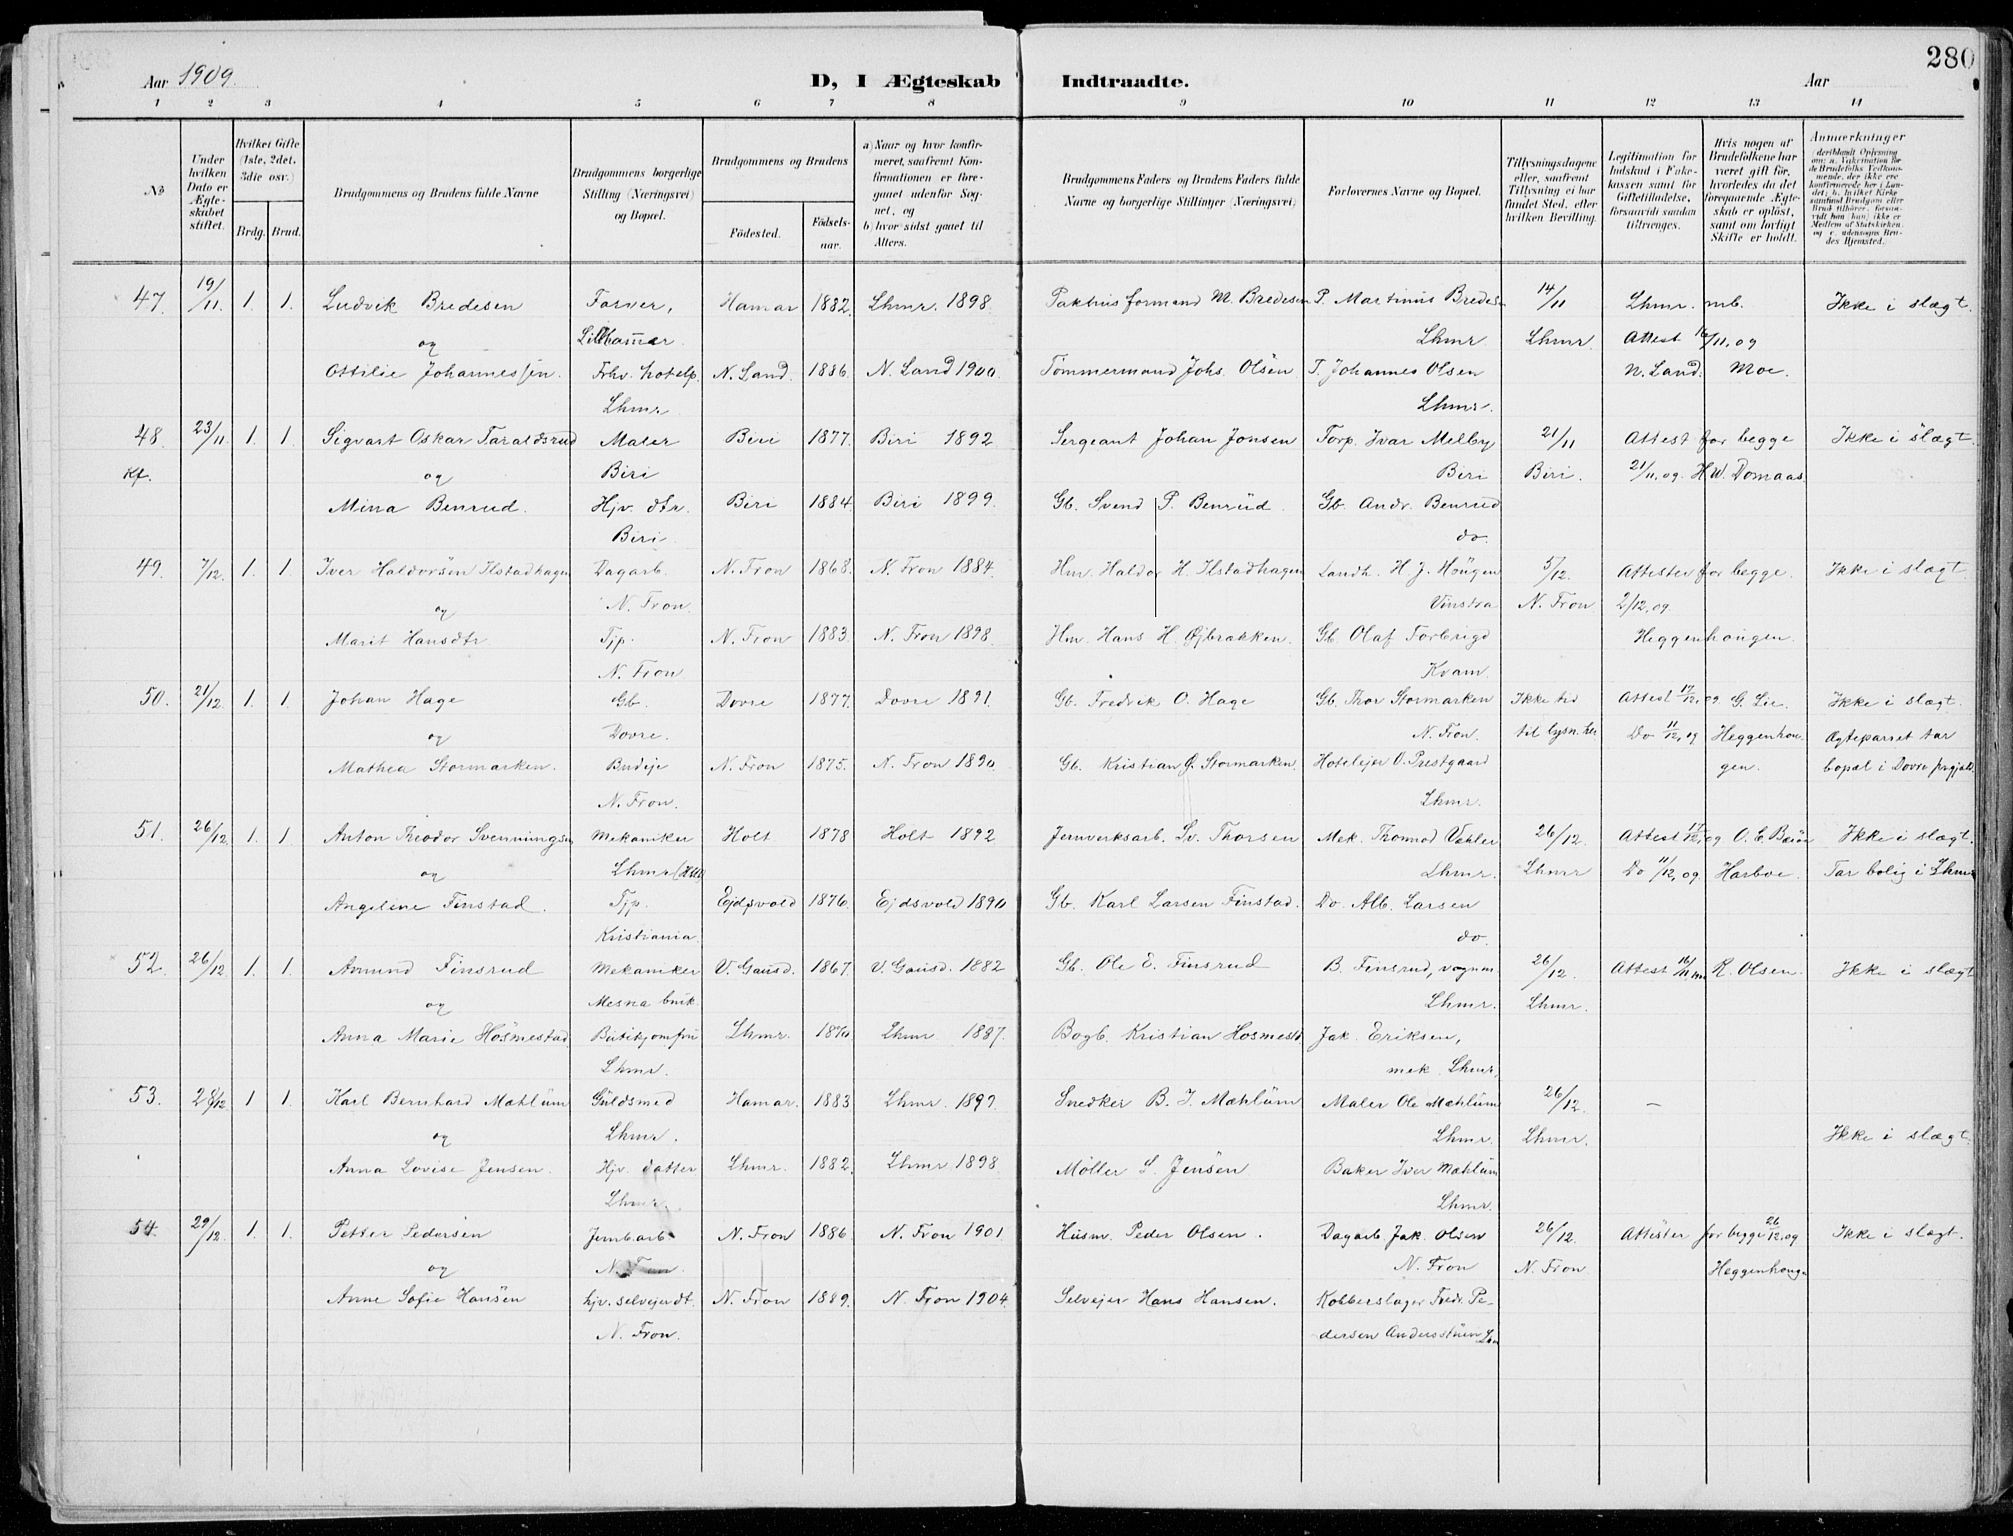 280
Aar 1909.
D, I Ægteskab Indtraadte.
Aar
1 2 3 4 5 6 7 8 9 10 11 12 13 14
No
Under hvilken Dato er Ægteskabet stiftet.
Hvilket Gifte (1ste, 2det, 3die osv.)
Brdg. Brud.
Brudgommens og Brudens fulde Navne
Brudgommens borgerlige Stilling (Næringsvei) og Bopæl.
Brudgommens og Brudens
Fødested.
Fødselsaar.
a) Naar og hvor konfirmeret, saafremt Konfirmationen er foregaaet udenfor Sognet, og
b) hvor sidst gaaet til Alters.
Brudgommens Faders og Brudens Faders fulde Navne og borgerlige Stillinger (Næringsvei)
Forlovernes Navne og Bopæl.
Tillysningsdagene eller, saafremt Tillysning ei har fundet Sted, efter hvilken Bevilling.
Legitimation for Indskud i Enkekassen samt for Giftetilladelse, forsaavidt saadan tiltrænges.
Hvis nogen af Brudefolkene har været gift før, hvorledes da det foregaaende Ægteskab er opløst, samt om lovligt Skifte er holdt.
Anmærkninger
47. 19/11. 1. 1. Ludvik Bredesen Farver, Hamar 1882. Lhmr. 1898. Pakhusformand M. Bredesen P. Martinus Bredesen 14/11 Lhmr. mb. Ikke i slægt.
og Lillehammer. Lhmr. Lhmr. Attest 16/11, 09
Ottilie Johannessen. Frhv. hotelp. N. Land. 1886. N. Land 1900. Tømmermand Johs. Olsen T. Johannes Olsen N. Land. Moe.
Lhmr Lhmr.
48. 23/11. 1. 1. Sigvart Oskar Taraldsrud Maler Biri 1877. Biri 1892 Sergeant Johan Jonsen Forp. Ivar Melby 21/11 Attest for begge Ikke i slægt.
Kf. og Biri Biri Biri. 21/11, 09. H.W. Domaas.
Mina Benrud. Hjv. dtr. Biri 1884. Biri 1899. Gb. Svend P. Benrud. Gb. Andr. Benrud
Biri. do.
49. 7/12. 1. 1. Iver Haldorsen Ilstadhagen Dagarb. N. Fron 1868. N. Fron 1884. Hm. Haldor H. Ilstadhagen Landh. H. J. Hougen 5/12. Attester for begge. Ikke i slægt.
og N. Fron. Vinstra N. Fron 2/12, 09.
Marit Hansdtr Tjp. N. Fron 1883. N. Fron 1898. Hm. Hans H. Øjbrækken. Gb. Olaf Forbrigd Heggenhougen.
N. Fron Kvam.
50. 21/12. 1. 1. Johan Hage Gb. Dovre 1877. Dovre 1891. Gb. Fredrik O. Hage Gb. Thor Stormarken Ikke tid Attest 17/12, 09 G. Lie. Ikke i slægt.
og Dovre. N. Fron. til lysn. her Do 11/12, 09 Heggenhou- Ægteparret tar
Mathea Stormarken. Budeje N. Fron 1875. N. Fron 1890. Gb. Kristian G. Stormarken. Hotelejer O. Prestgaard gen. bopæl i Dovre prgjæld.
N. Fron. Lhmr.
51. 26/12. 1. 1 Anton Theodor Svenningsen Mekaniker Holt 1878 Holt 1892 Jernverksarb. Sv. Thorsen Mek. Thomod Vehler 26/12. Attest 17/12, 09 O. E. Ikke i slægt.
og Lhmr Lhmr. Lhmr Do 11/12, 09 Harboe. Tar bolig i Lhmr
Angeline Finstad. Tjp. Ejdsvold 1876. Ejdsvold 1890 Gb. Karl Larsen Finstad. Do. Alb. Larsen
Kristiania. do.
52. 26/12 1. 1. Amund Finsrud Mekaniker V. Gausd. 1867. V. Gausd. 1882 Gb. Ole E. Finsrud B. Finsrud, vognm. 26/12. Attest 16/11 R. Olsen. Ikke i slægt
og Mesna bruk. Lhmr. Lhmr.
Anna Marie Hosmestad Butikjomfru Lhmr. 1870. Lhmr 1887. Bogb. Kristian Hosmest. Jak. Eriksen,
Lhmr. mek. Lhmr.
53. 28/12 1 1. Karl Bernhard Mæhlum Guldsmed Hamar. 1883. Lhmr. 1897. Snedker B. J. Mæhlum Maler Ole Mæhlum 26/12. —
og Lhmr. Lhmr. Lhmr. Ikke i slægt.
Anna Lovise Jensen. Hjv. datter Lhmr. 1882. Lhmr 1898. Møller S. Jensen Baker Iver Mæhlum
Lhmr. Lhmr.
54. 29/12. 1. 1. Petter Pedersen Jernbarb. N. Fron 1886. N. Fron 1901. Husm. Peder Olsen. Dagarb. Jak. Olsen 26/12. Attester for begge 26/12, 09 Ikke i slægt.
og N. Fron. N. Fron N. Fron. Heggenhougen
Anne Sofie Hansen hjv. selvejerdt. N. Fron 1889. N. Fron 1904. Selvejer Hans Hansen. Kobberslager Fredr. Pe-
N. Fron. dersen Andersstuen